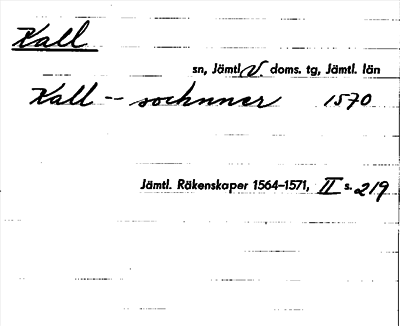 Kall
sn, Jämtl. V. doms. tg, Jämtl. län
Kall -- sochnner 1570
Jämtl. Räkenskaper 1564–1571, II s. 219